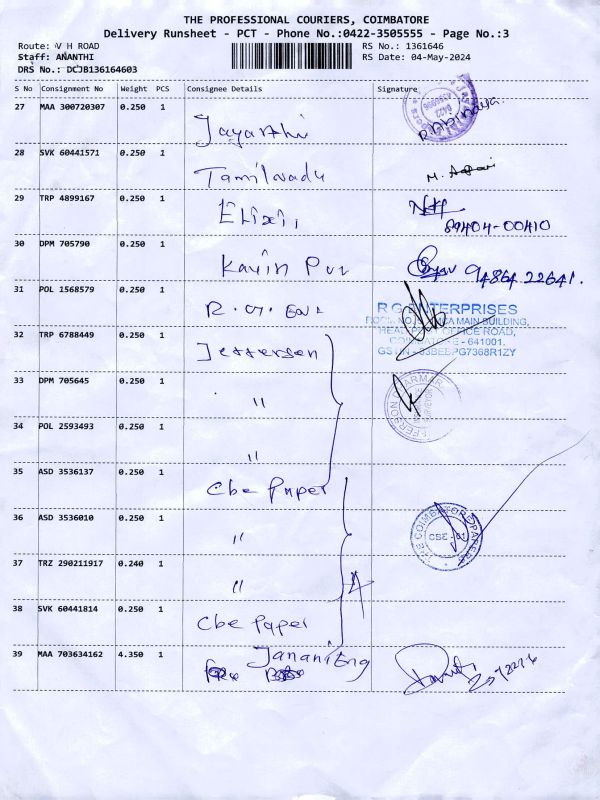 THE PROFESSIONAL COURIERS, COIMBATORE
Delivery Runsheet - PCT - Phone No.:0422-3505555 - Page No.:3
Route: V H ROAD
Staff: ANANTHI
DRS No.: DCJB136164603
RS No.: 1361646
RS Date: 04-May-2024
S No Consignment No Weight PCS Consignee Details Signature
27 MAA 300720307 0.250 1 Jayanthi
28 SVK 60441571 0.250 1 Tamilnadu
29 TRP 4899167 0.250 1 Elixir
89404-00410
30 DPM 705790 0.250 1 Kavin Pur 94864 22641.
31 POL 1568579 0.250 1 R.G. Ent
R G ENTERPRISES
MAIN BUILDING,
HEAD POST OFFICE ROAD,
COIMBATORE - 641001.
32 TRP 6788449 0.250 1 Jefferson
33 DPM 705645 0.250 1 "
34 POL 2593493 0.250 1 "
35 ASD 3536137 0.250 1 Cbe Paper
36 ASD 3536010 0.250 1 "
THE COIMBATORE PAPER
CBE - 01
37 TRZ 290211917 0.240 1 "
4
38 SVK 60441814 0.250 1 Cbe Paper
39 MAA 703634162 4.350 1 Janani Eng